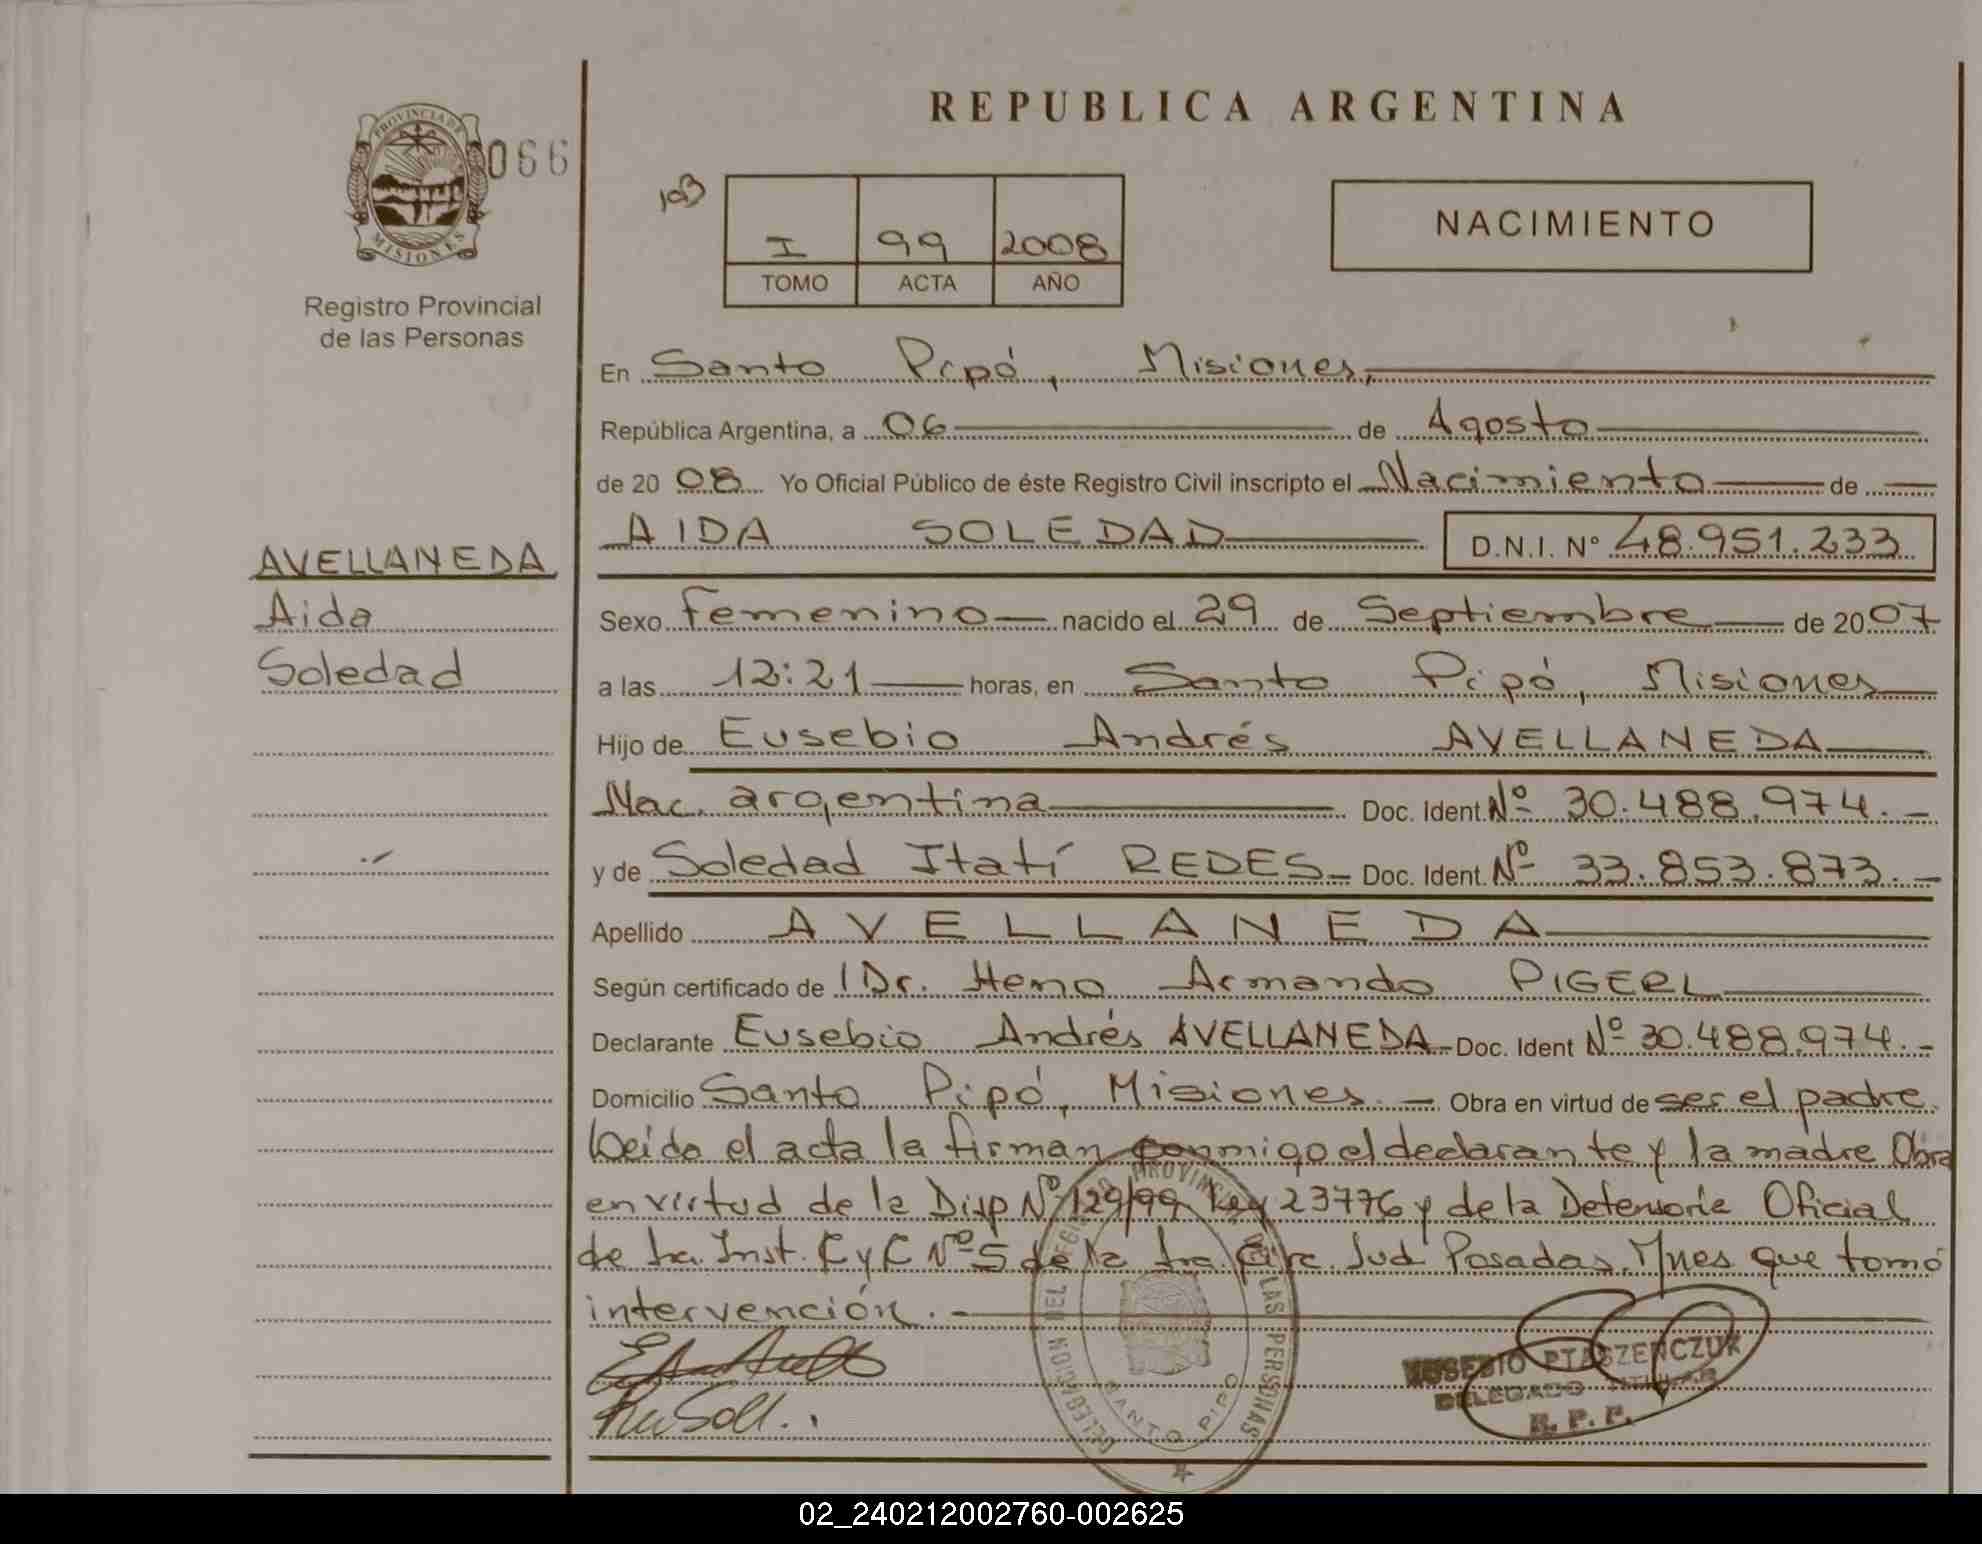 REPUBLICA ARGENTINA
PROVINCIA DE MISIONES
066
103
I 99 2008
TOMO ACTA AÑO
NACIMIENTO
Registro Provincial
de las Personas
En Santo Pipó, Misiones,
República Argentina, a 06 de Agosto
de 20 08 Yo Oficial Público de éste Registro Civil inscripto el Nacimiento de
AIDA SOLEDAD D.N.I. N° 48.951.233
AVELLANEDA
Aida
Soledad
Sexo Femenino nacido el 29 de Septiembre de 20 07
a las 12:21 horas, en Santo Pipó, Misiones
Hijo de Eusebio Andrés AVELLANEDA
Nac. argentina Doc. Ident. Nº 30.488.974.-
y de Soledad Itatí REDES- Doc. Ident. Nº 33.853.873.-
Apellido AVELLANEDA
Según certificado de 1 Dr. Heno Armando PIGERL
Declarante Eusebio Andrés AVELLANEDA Doc. Ident Nº 30.488.974.-
Domicilio Santo Pipó, Misiones.- Obra en virtud de ser el padre.
Leído el acta la firman conmigo el declarante y la madre Obra
en virtud de la Disp Nº 129/99 Ley 23776 y de la Defensoría Oficial
de 1ra. Inst. C y C Nº 5 de la 1ra. Circ. Jud Posadas, Mnes que tomó
intervención.-
DELEGACION DEL REGISTRO PROVINCIAL DE LAS PERSONAS
SANTO PIPO
EUSEBIO PTASZENCZUK
DELEGADO TITULAR
R. P. P.
02_240212002760-002625